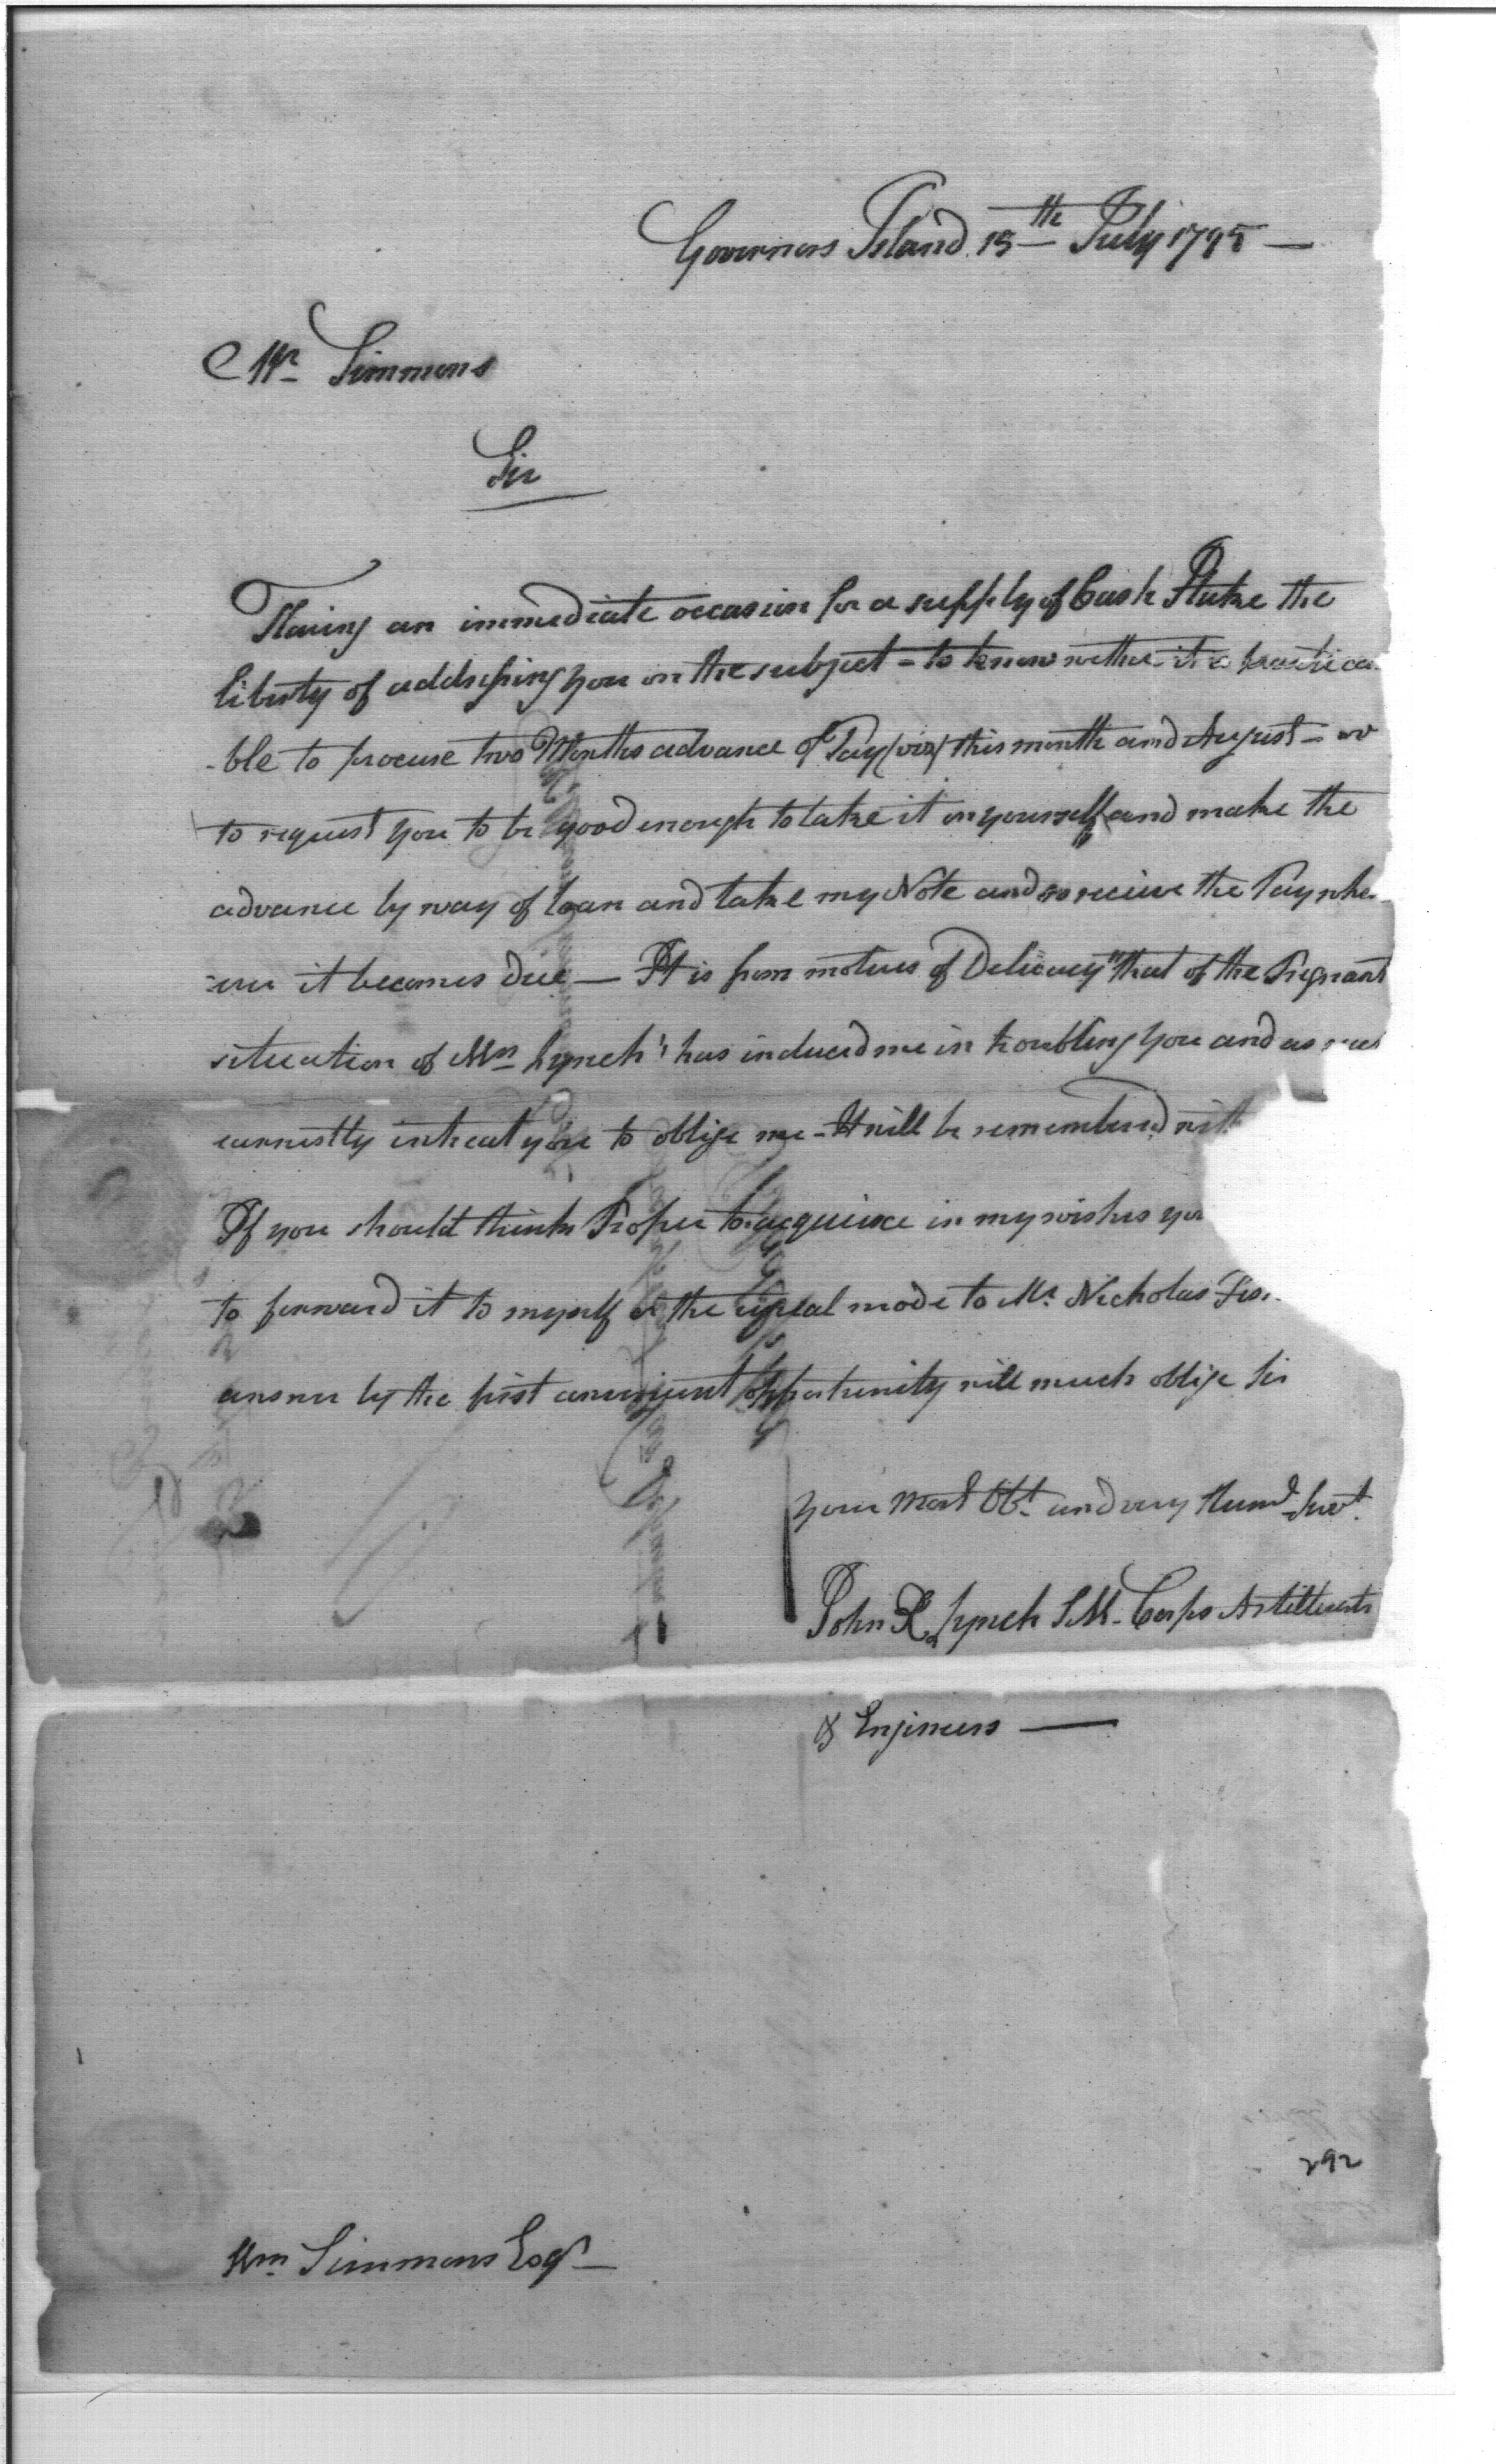 Governors Island 15th July 1795 —
Mr Simmons
Sir
Having an immediate occasion for a supply of Cash I take the
liberty of addressing you on the subject - to know wether it is practica
-ble to procure two Months advance of Pay (viz) this month and August - or
to request you to be good enough to take it on yourself and make the
advance by way of loan and take my Note and so receive the Pay when
-ever it becomes due — It is from motives of Delicacy "that of the Pregnant
situation of Mrs Lynch" has induced me in troubling you and as
earnestly intreat you to oblige me - It will be remembered with
If you should think Proper to acquiesce in my wishes you
to forward it to myself or the usual mode to Mr. Nicholas Fis
answer by the first convenient opportunity will much oblige Sir
your most Obt. and very Humb Servt.
John R Lynch S.M. Corps Artillerists
& Engineers —
292
Wm Simmons Esqr